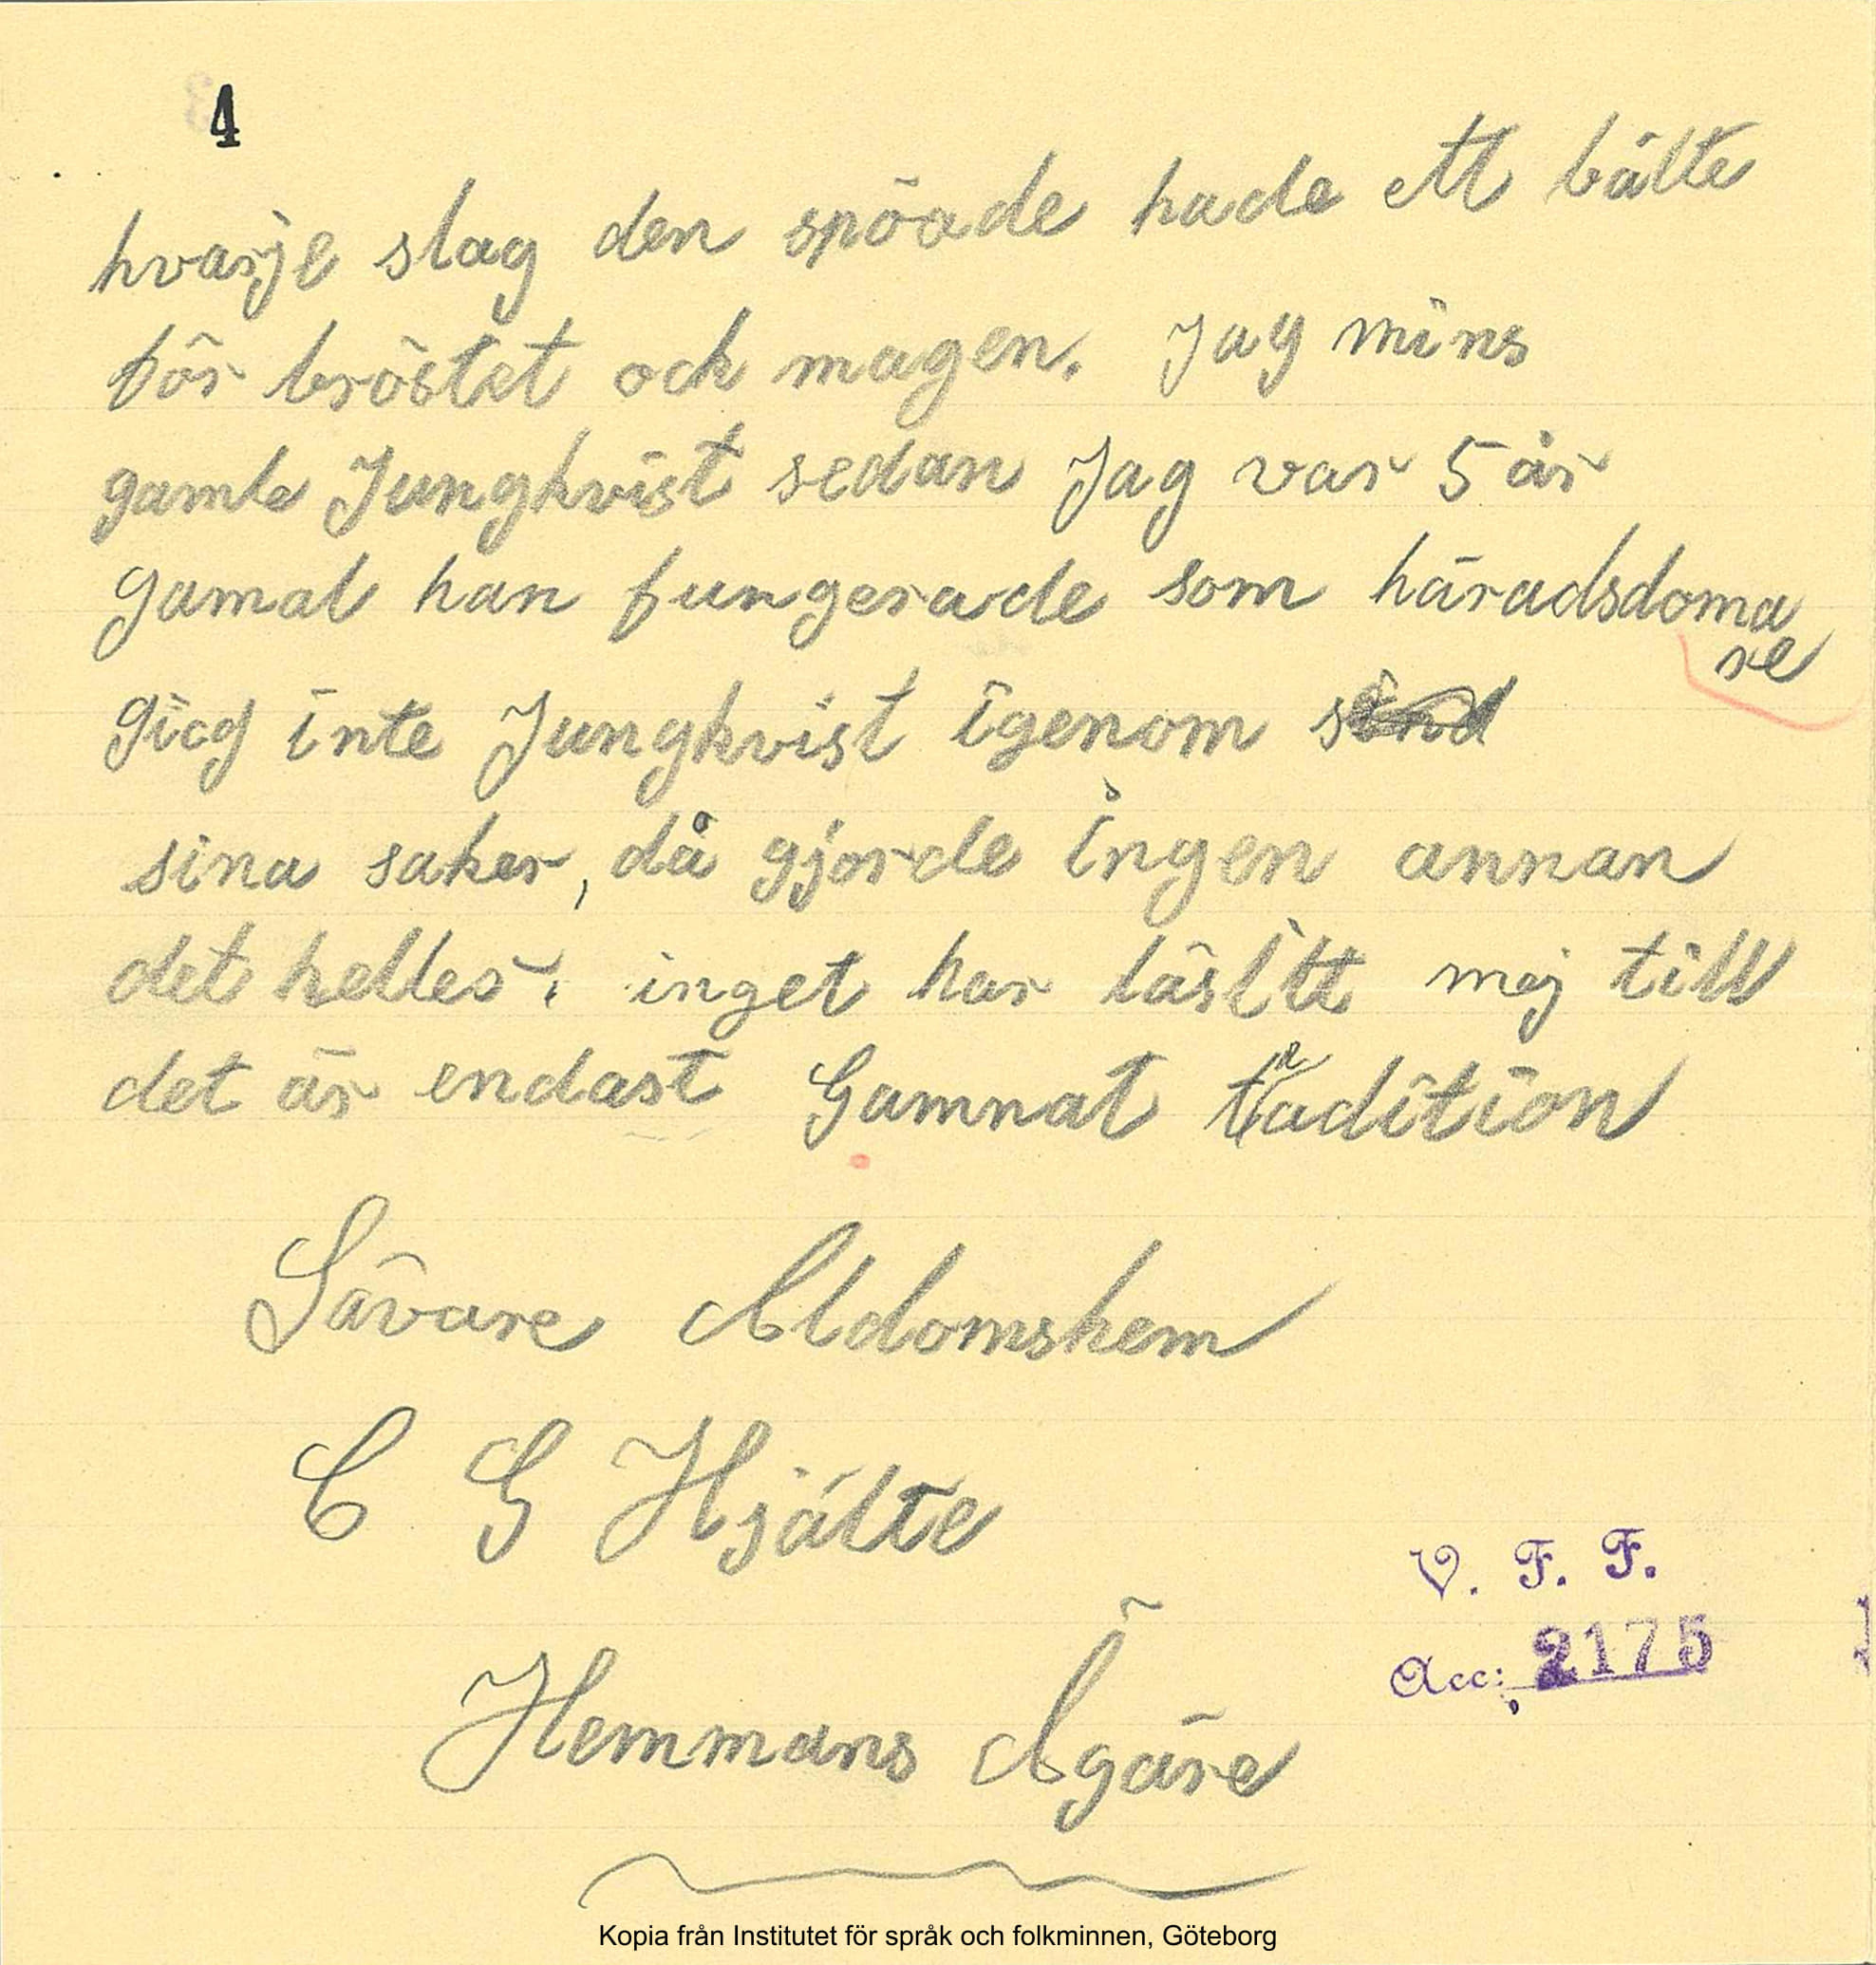 4
hvarje slag den spöade hade ett bälte
för bröstet och magen. Jag mins
gamle Jungkvist sedan Jag var 5 år
gamal han fungerade som häradsdoma
re
gicg inte Jungkvist igenom
sina saker, då gjorde ingen annan
det heller. inget har läsitt mej till
det är endast Gamnat tradition
Sävare Aldomshem
C G Hjälte
Hemmans Ägäre
V. F. F.
Acc: 2175
Kopia från Institutet för språk och folkminnen, Göteborg